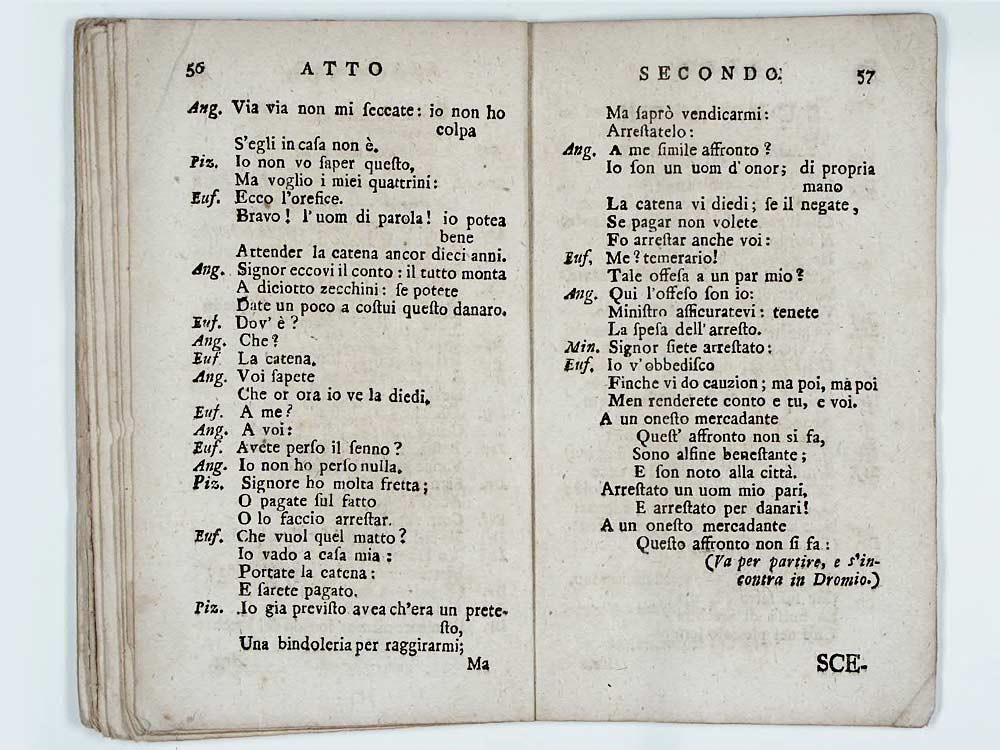 56 ATTO
Ang. Via via non mi ſeccate: io non ho
colpa
S'egli in caſa non è.
Piz. Io non vo ſaper queſto,
Ma voglio i miei quattrini:
Euf. Ecco l'orefice.
Bravo! l'uom di parola! io potea
bene
Attender la catena ancor dieci anni.
Ang. Signor eccovi il conto: il tutto monta
A diciotto zecchini: ſe potete
Date un poco a coſtui queſto danaro.
Euf. Dov' è?
Ang. Che?
Euf La catena.
Ang. Voi ſapete
Che or ora io ve la diedi.
Euf. A me?
Ang. A voi:
Euf. Avete perſo il ſenno?
Ang. Io non ho perſo nulla.
Piz. Signore ho molta fretta;
O pagate ſul fatto
O lo faccio arreſtar.
Euf. Che vuol quel matto?
Io vado a caſa mia:
Portate la catena:
E ſarete pagato.
Piz. Io gia previſto avea ch'era un prete-
ſto,
Una bindoleria per raggirarmi;
Ma
SECONDO. 57
Ma ſaprò vendicarmi:
Arreſtatelo:
Ang. A me ſimile affronto?
Io ſon un uom d'onor; di propria
mano
La catena vi diedi; ſe il negate,
Se pagar non volete
Fo arreſtar anche voi:
Euf. Me? temerario!
Tale offeſa a un par mio?
Ang. Qui l'offeſo ſon io:
Miniſtro aſſicuratevi: tenete
La ſpeſa dell'arreſto.
Min. Signor ſiete arreſtato:
Euf. Io v'obbediſco
Finche vi do cauzion; ma poi, ma poi
Men renderete conto e tu, e voi.
A un oneſto mercadante
Queſt' affronto non si fa,
Sono alfine beneſtante;
E ſon noto alla città.
Arreſtato un uom mio pari,
E arreſtato per danari!
A un oneſto mercadante
Queſto affronto non ſi fa:
(Va per partire, e s'in-
contra in Dromio.)
SCE-